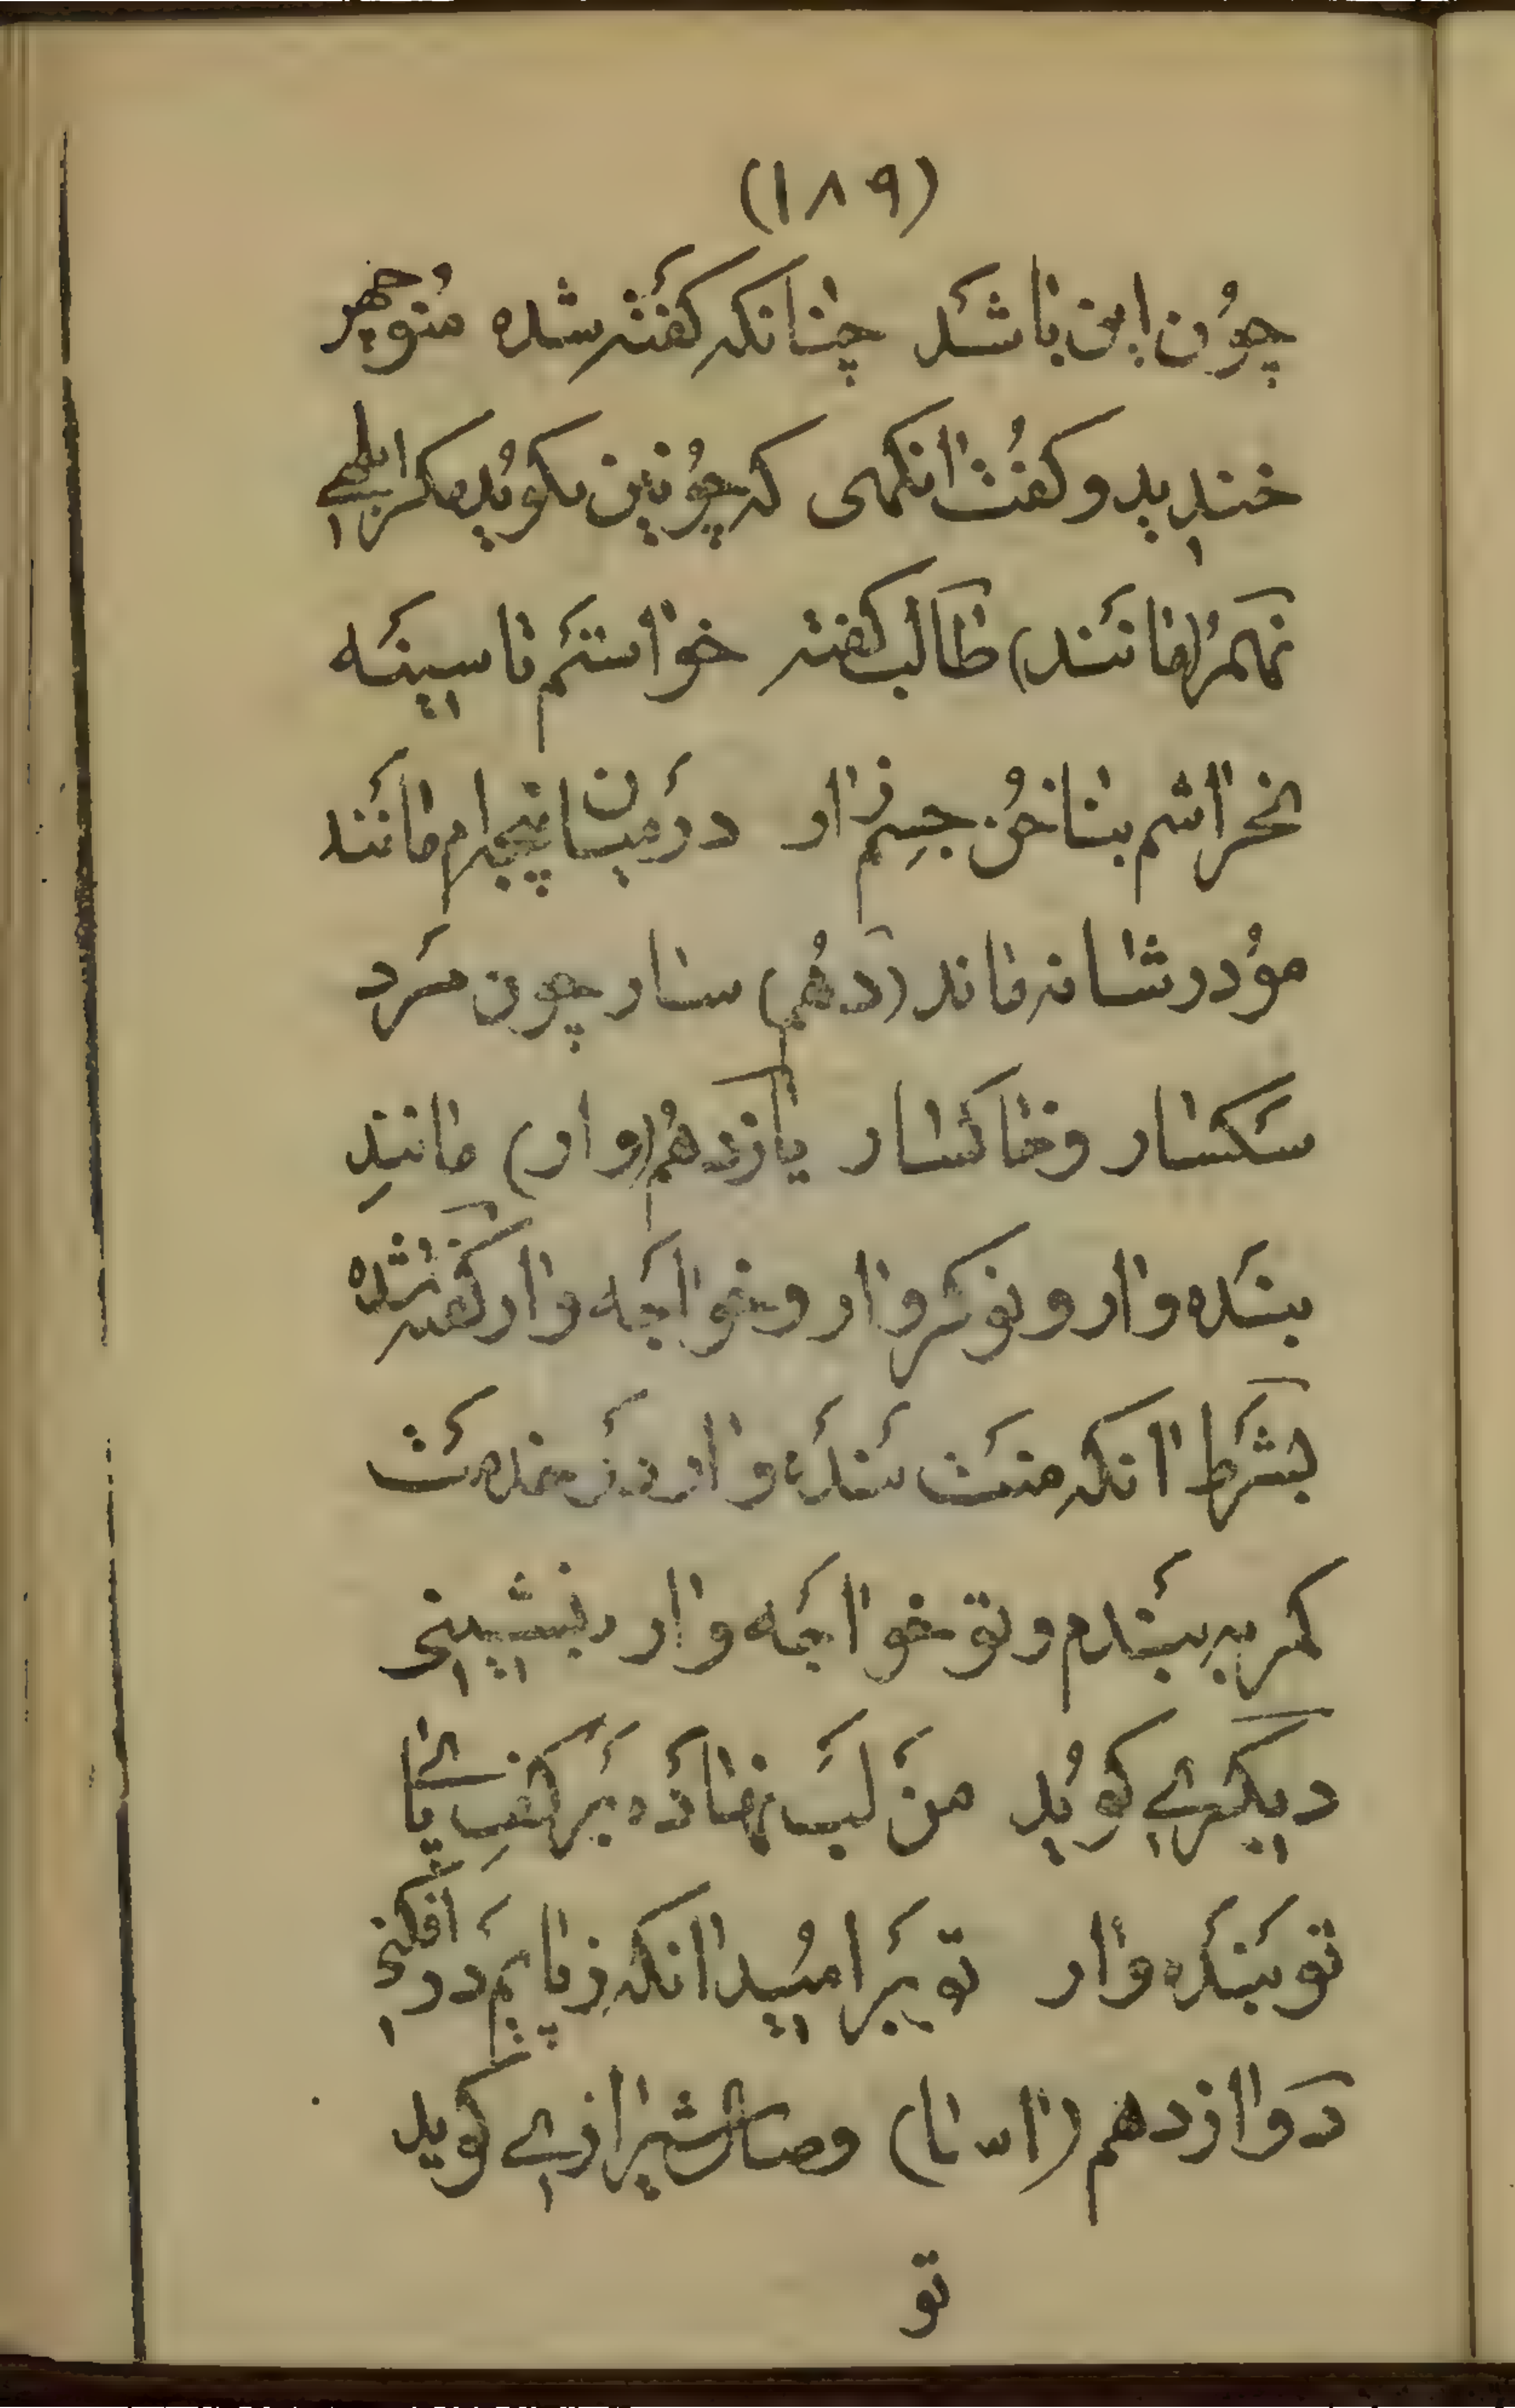 (۱۸۹)
چوُن این باشَد چنانکه کفَته شده منوُچهر
خندید و کفُت انکهی که چوُنین کویُد مکر ابلهے
نهمُ (مانَند) طالَب کفته خواستَم تا سینَه
بخراشم بناخُن جسِم زار درَمیان پنجه ام مانَند
موُ در شانه ماند (دهُم) سار چون سَرد
سَکسار و خاکسَار یازدهُم (وار) مانندِ
بنَده وار و نوکَر وار و خواجَه وار کفته شده
بشَرط انکه منَت بَندَه وار درَ خدمَت
کمر به بنَدم و تو خواجَه وار بنشینی
دیکَرے کویُد منَ لبَ نهادَه برَ کفِ پاے
تو بنَدَه وار تو برَ امیُد انکه ز پایمَ در افکنی
دَوازدهم (اسا) وصال شیرازے کوید
تو